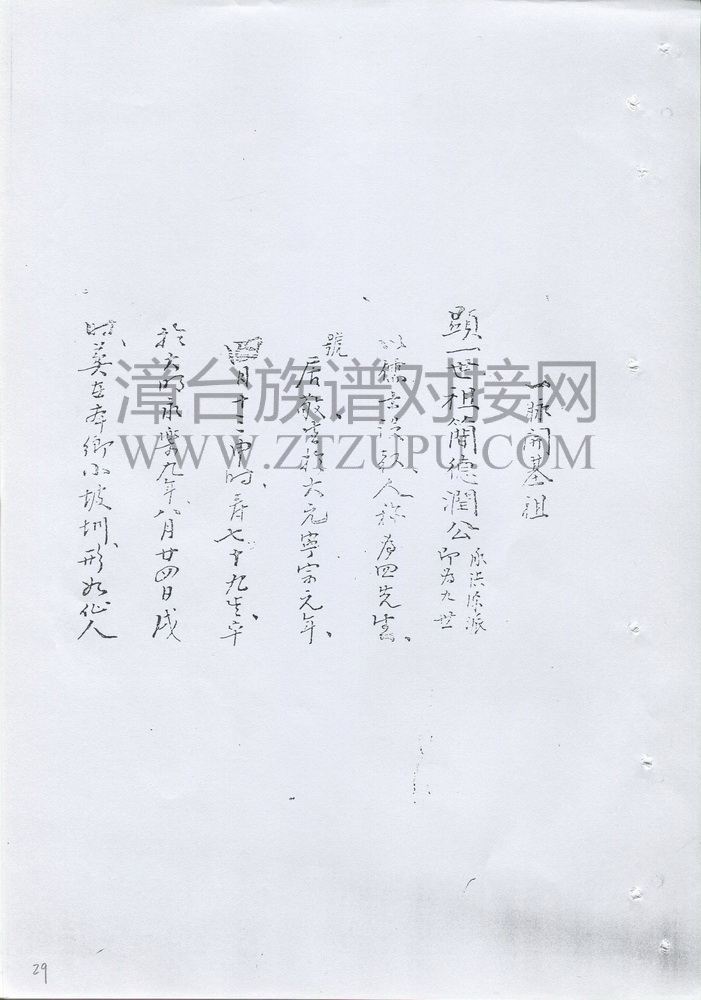 一脉開基祖
顯一世祖簡德潤公
承洪源派
即为九世
儒士 人称为四先生、
號居敬生於大元寧宗元年、
四月十三 時、壽七十九 卒
於大明永樂九年八月廿四日戌
時、葬在本鄉小坡圳、形如仙人
漳台族谱对接网
WWW.ZTZUPU.COM
29